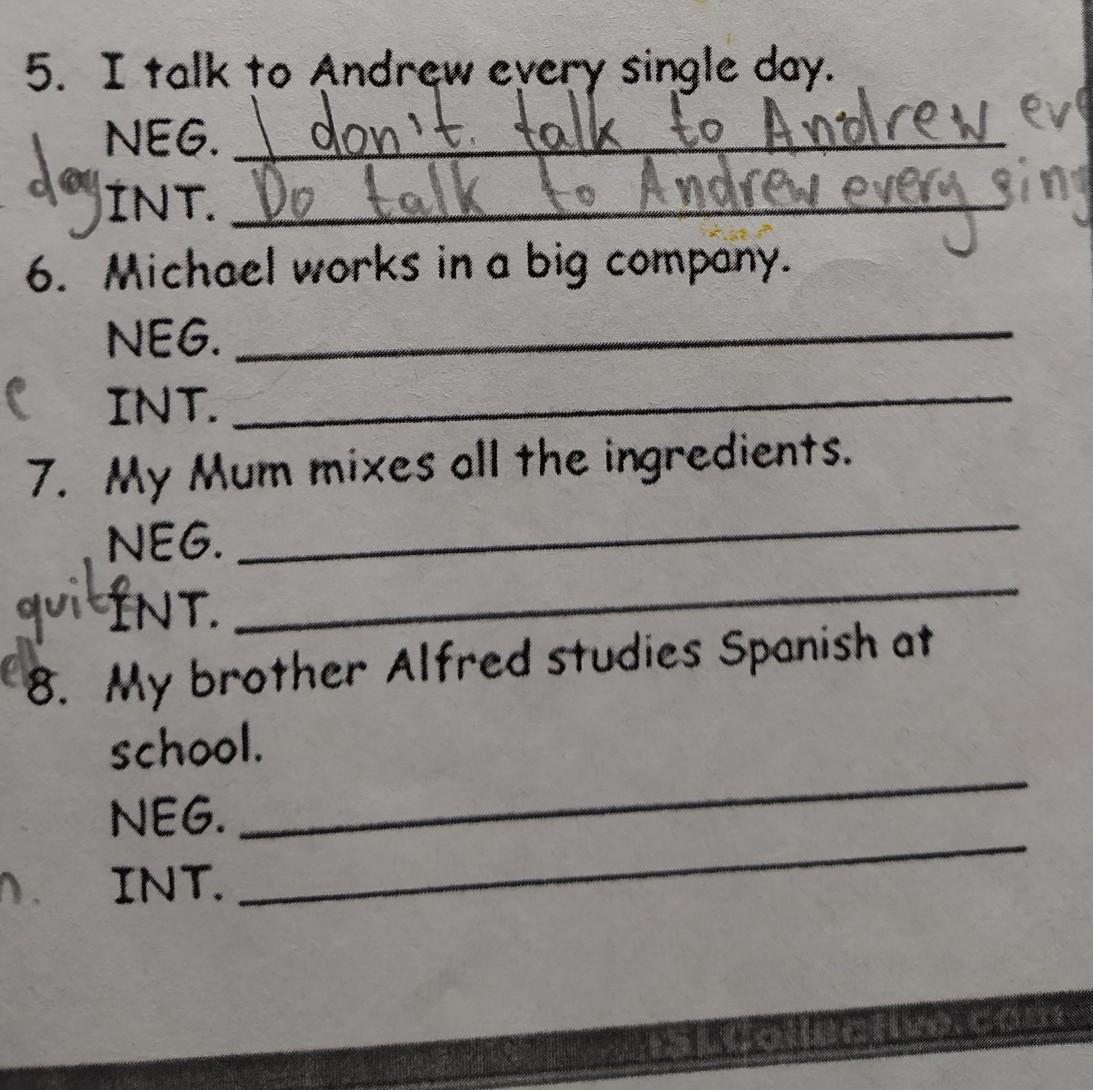 5. I talk to Andrew every single day.
NEG. I don't. talk to Andrew eve
day
INT. Do talk to Andrew every sing
6. Michael works in a big company.
NEG.
e
INT.
7. My Mum mixes all the ingredients.
NEG.
quite
INT.
8. My brother Alfred studies Spanish at
school.
NEG.
n.
INT.
iSLCollective.com